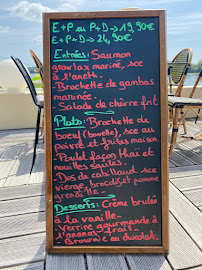 E + P ou P + D → 19,90€
E + P + D → 24,90€
Entrées: Saumon
gravlax maison, sce
à l'aneth.
- Brochette de gambas
marinée.
- Salade de chèvre frit
Plats: Brochette de
boeuf (bavette), sce au
poivre et frites maison
- Poulet façon thaï et
nouilles sautés.
- Dos de cabillaud sce
vierge, brocolis et pomme
grenaille
Desserts: Crème brulée
à la vanille
- Verrine gourmande à
l'ananas frais
- Brownie au chocolat.